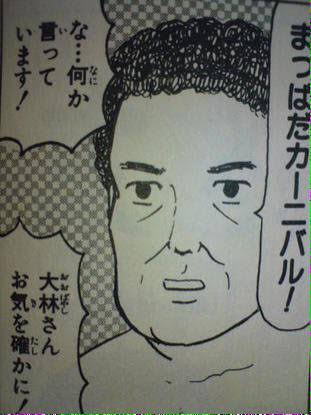 まっぱだカーニバル！
な…何か
言って
います！
大林さん
お気を確かに！